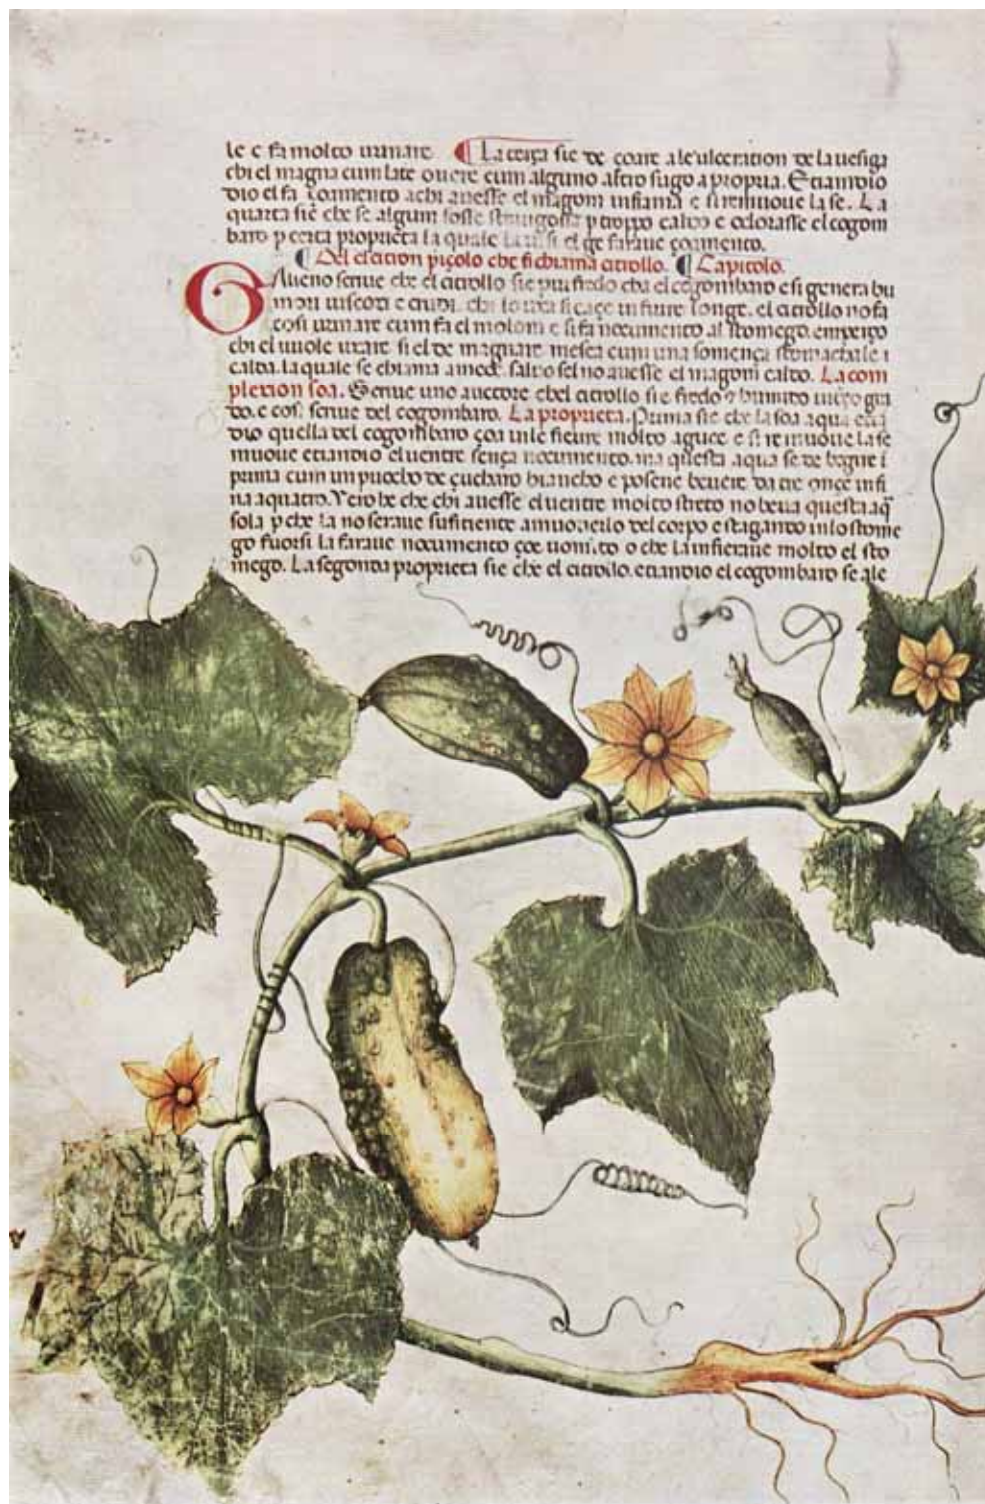 le e fa molto urinare ¶ La terça sie de çoare a le ulceration de la uesiga
chi el magna cum late ouere cum alguno altro sugo a propria. Etiamdio
dio el fa çoamento a chi auesse el magom infiamà e si remuoue la se. La
quarta sie che se algum fosse p troppo caldo e odorasse el cogom
baro p certa proprieta la quale el ge faraue çoamento.
¶ Del citron piçolo che se chiama citrollo. ¶ Capitolo.
Galieno scriue che el citrollo sie piu fredo cha el cogombaro e si genera hu
mori uiscoxi e crudi. chi lo uxa si caçe in fiure longe. el citrollo no fa
cosi urinare cum fa el molom e si fa nocumento al stomego. emperço
chi el uuole uxare si el de magnare mesceà cum una somença stomachale i
calda. la quale se chiama ameos. saluo sel no auesse el magom caldo. La com
plexion soa. Scriue uno auctore chel citrollo sie fredo e humido in terço gra
do. e cosi scriue del cogombaro. La proprieta. Prima sie che la soa aqua etia
dio quella del cogombaro çoa in le fieure molto aguce e si remuoue la se
muoue etiamdio el uentre sença nocumento. ma questa aqua se de bogire i
prima cum un pucho de çucharo biancho e posene beuere da tre once infi
na a quatro. Vero he che chi auesse el uentre molto streto no beua questa aq
sola p che la no seraue suficiente a muouerlo del corpo e stagando in lo stome
go fuorsi la faraue nocumento çoe uomito o che la infieraue molto el sto
mego. La segonda proprieta sie che el citrollo. etiamdio el cogombaro se ale